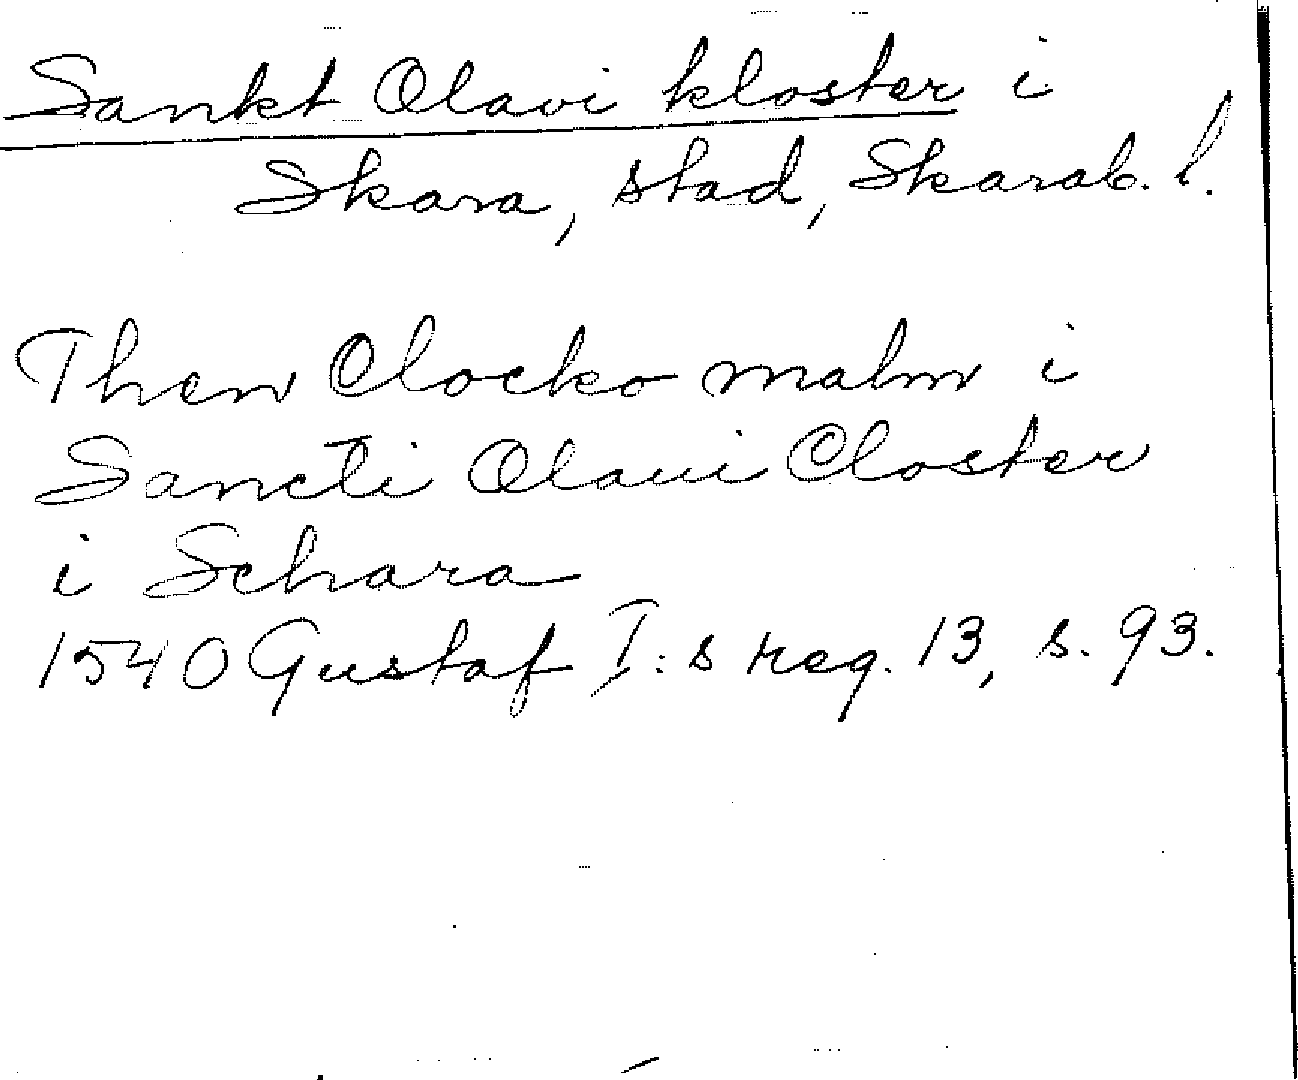 Sankt Olavi kloster i
Skara, stad, Skarab. l.
Then Clocko malm i
Sancti Olaui Closter
i Schara
1540 Gustaf I:s reg. 13, s. 93.